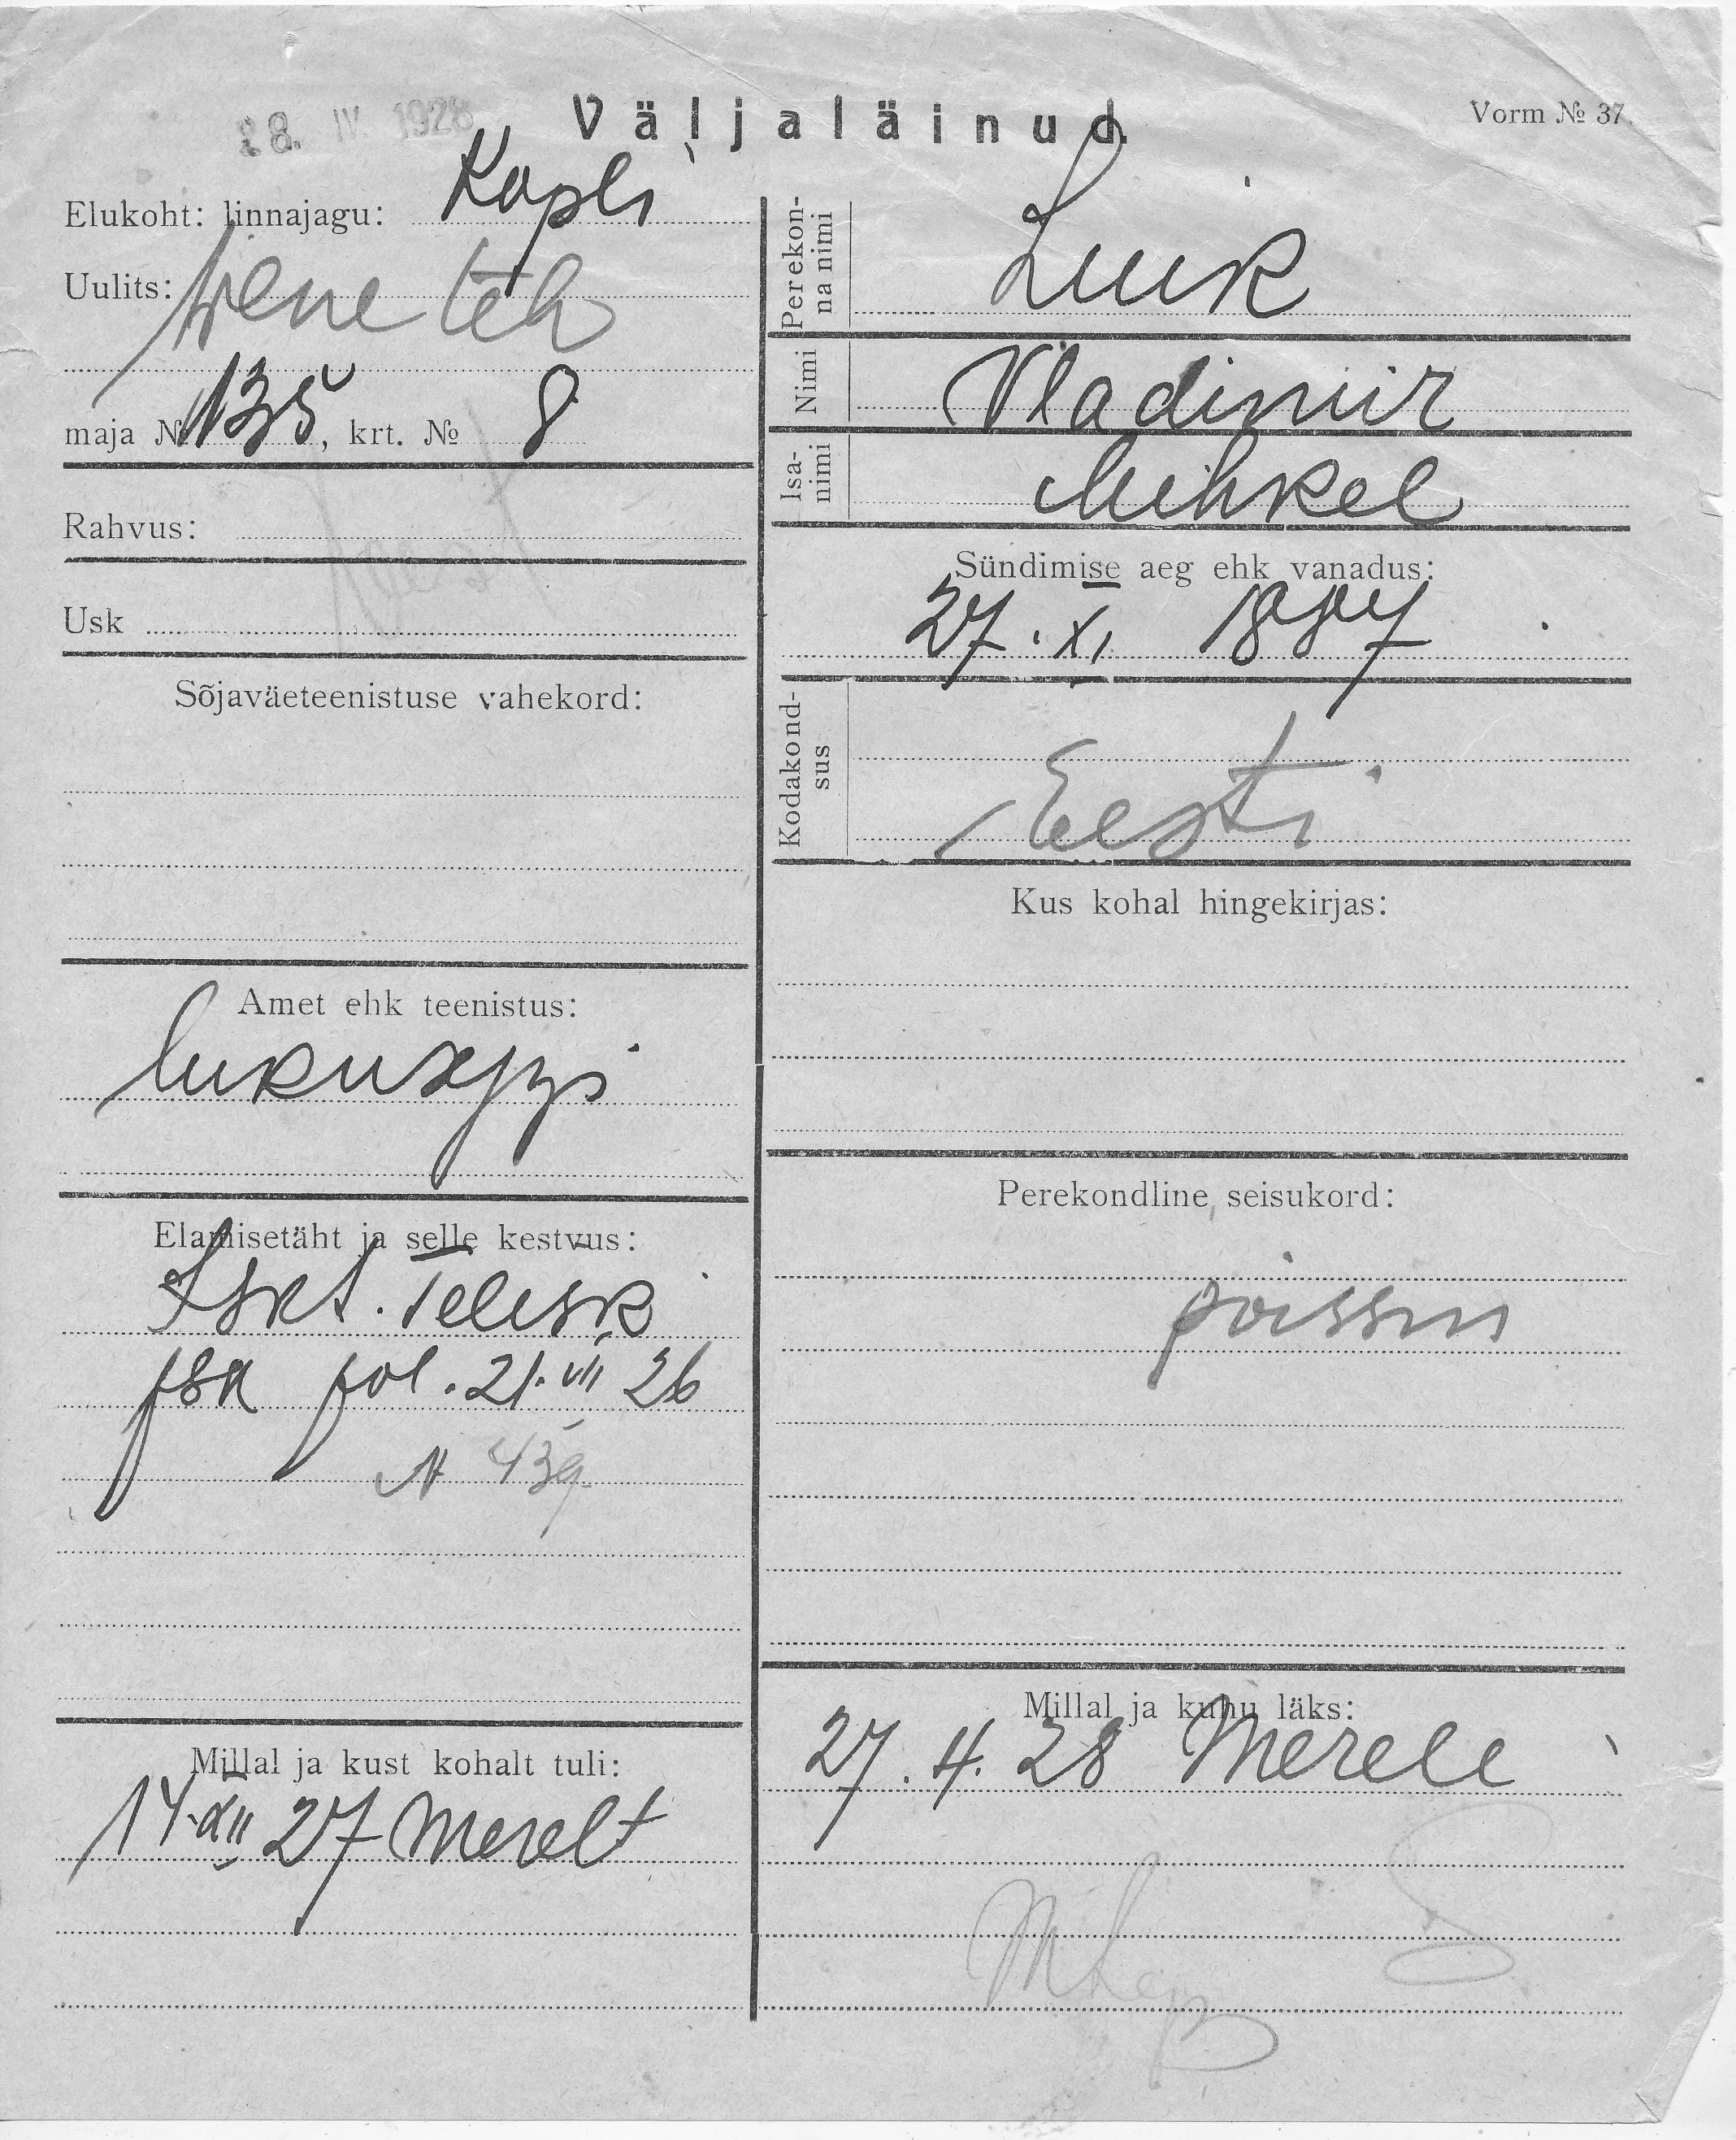 28. IV. 1928
Väljaläinud.
Vorm № 37.
Elukoht: linnajagu: Kopli
Uulits: Vene teh
maja № 135, krt. № 8
Rahvus:
Usk
Sõjaväeteenistuse vahekord:
Amet ehk teenistus:
lukusepp
Elamisetäht ja selle kestvus:
Iskt.
pol. 21. VII 26
N 439.
Millal ja kust kohalt tuli:
14. XII 27 Merelt
Perekon-
na nimi
Luik
Nimi
Vladimir
Isa-
nimi
Mihkel
Sündimise aeg ehk vanadus:
27. XI
Kodakond-
sus
Eesti
Kus kohal hingekirjas:
Perekondline seisukord:
poissm
Millal ja kuhu läks:
27. 4. 28 Merele